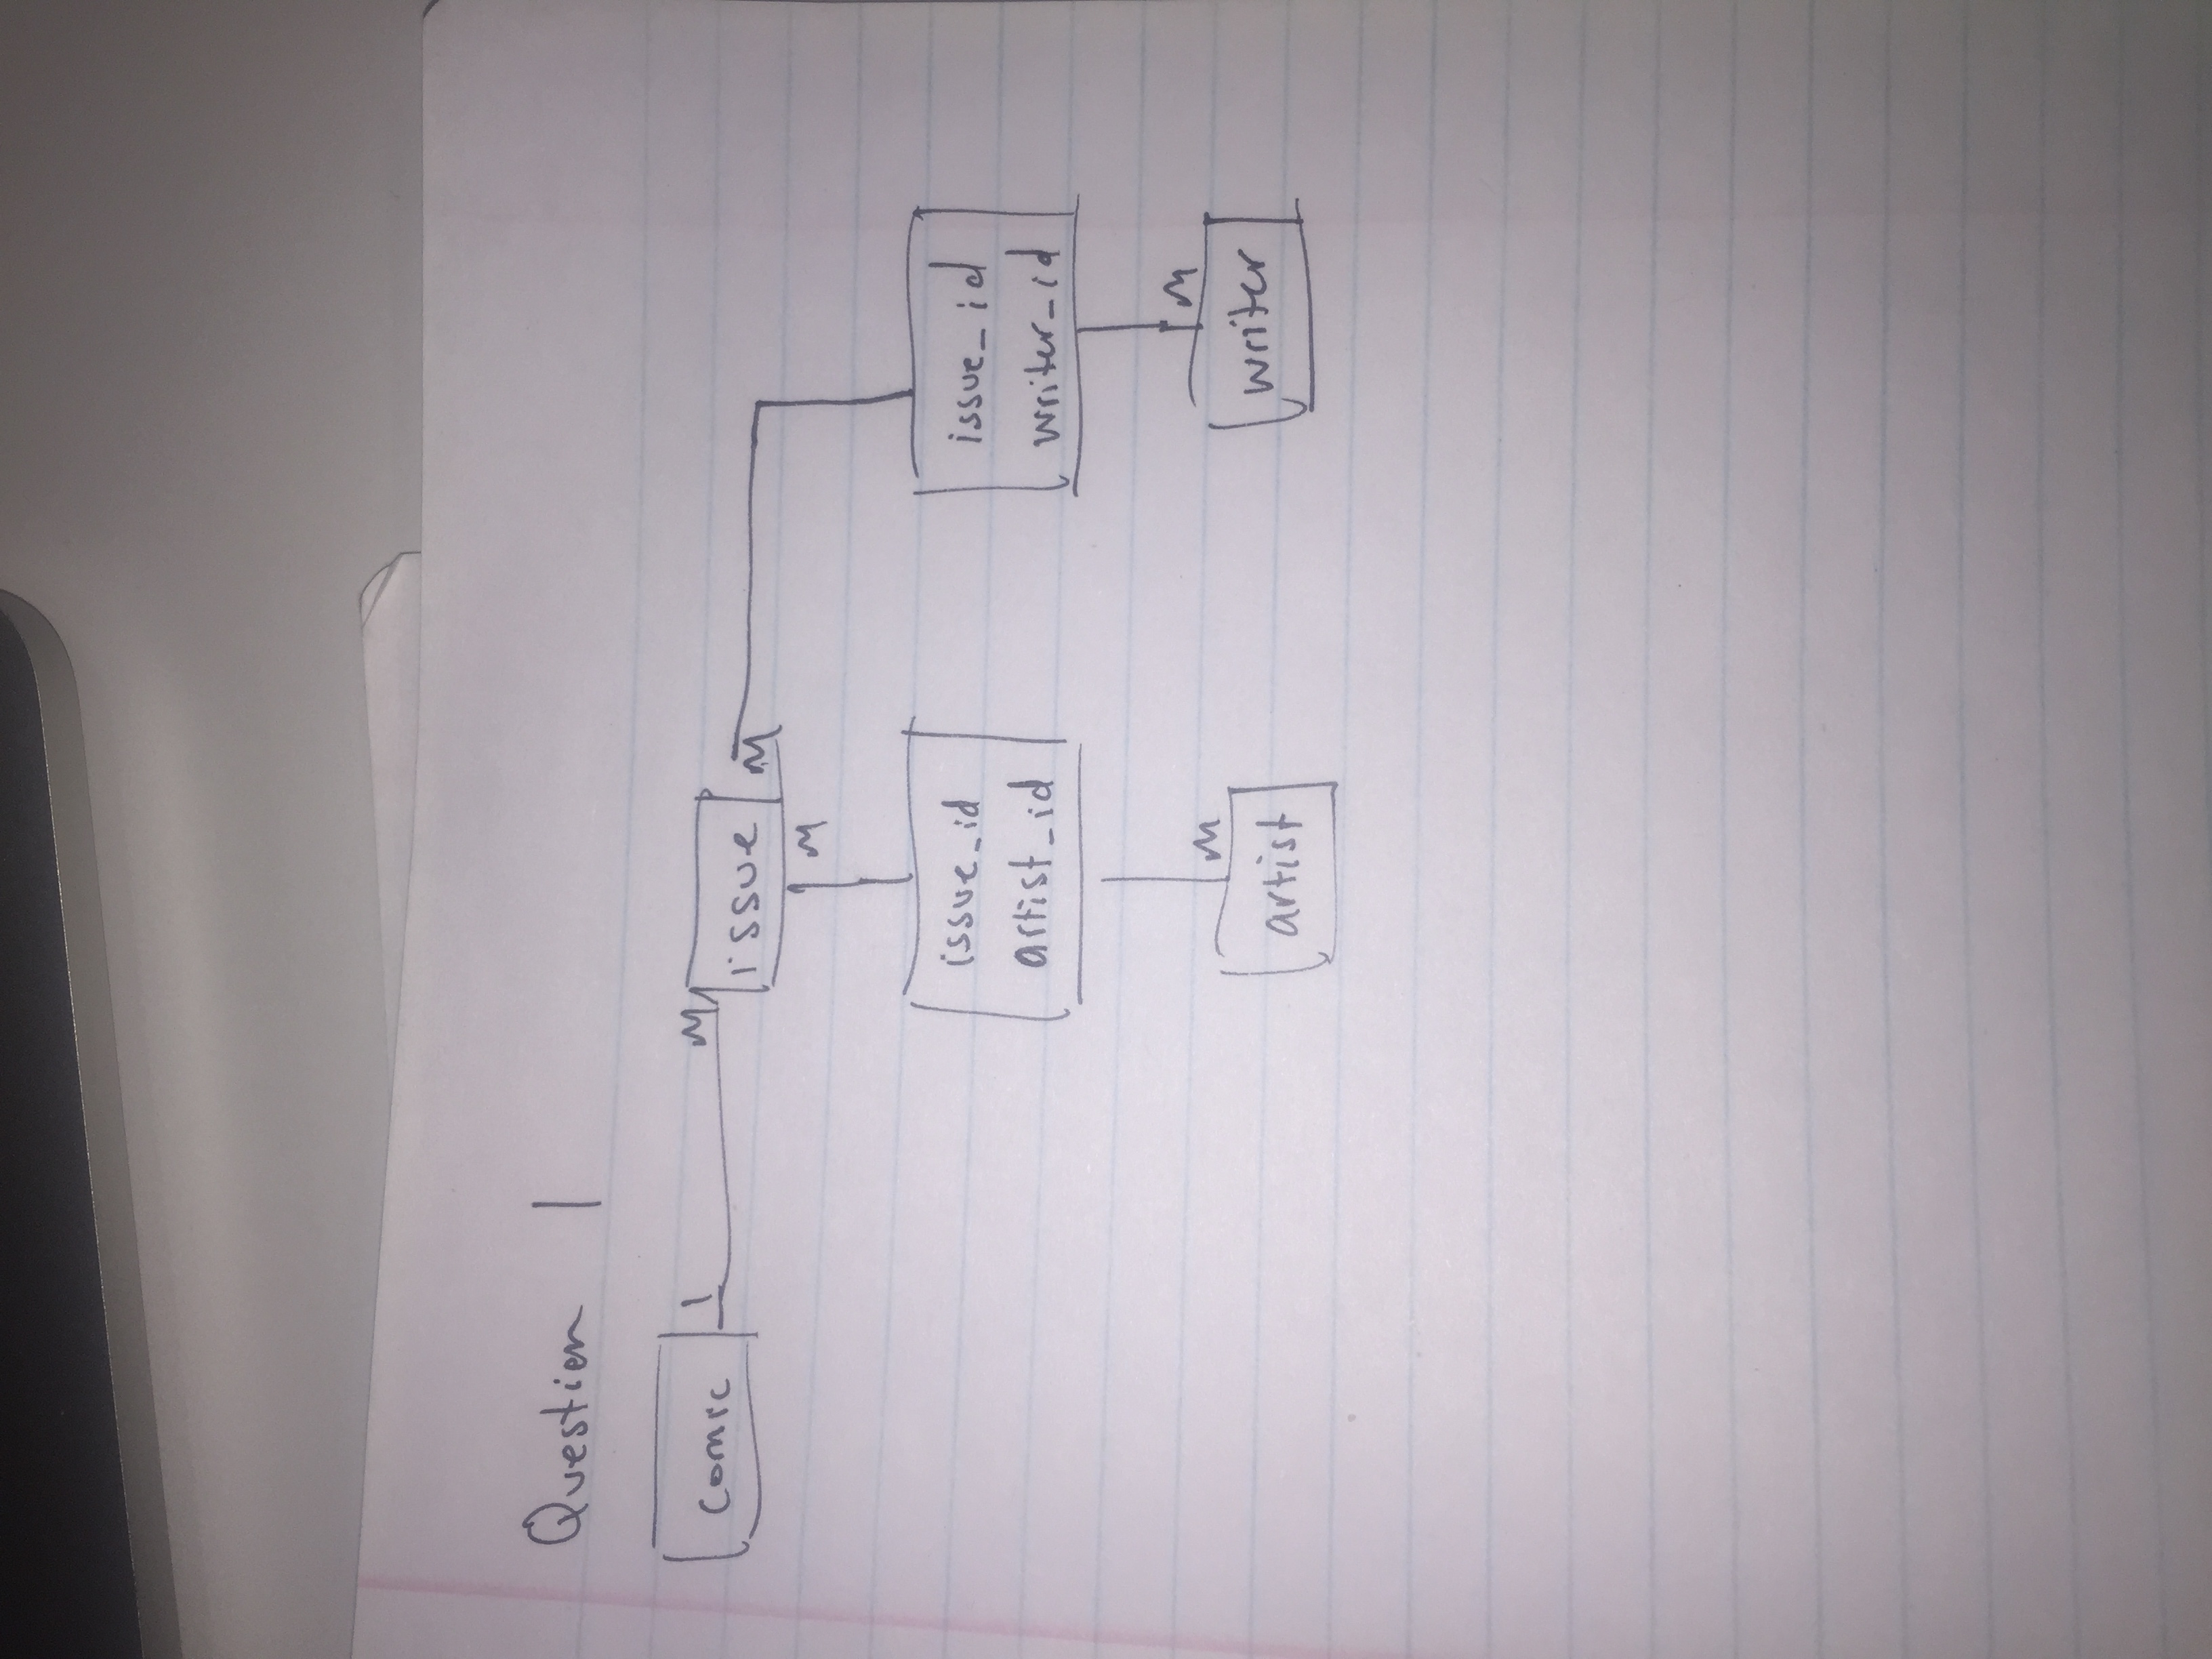 Question 1
comic 1 M issue M
M
issue_id
artist_id
issue_id
writer_id
M
artist
M
writer